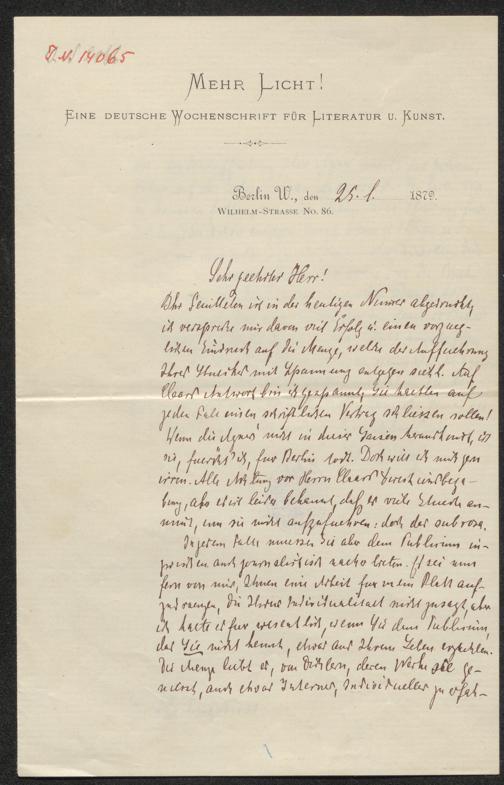 I. N. 14065
MEHR LICHT!
EINE DEUTSCHE WOCHENSCHRIFT FÜR LITERATUR U. KUNST.
Berlin W., den 25. 1. 1879.
WILHELM-STRASSE No. 86.
Sehr geehrter Herr!
Ihr Feuilleton ist in der heutigen Numer abgedruckt,
ich verspreche mir davon viel Erfolg u. einen vorzueg-
lichen Eindruck auf die Menge, welche der Auffuehrung
Ihres Stueckes mit Spannung entgegen sieht. Auf
Claars Antwort bin ich gespannt; Sie haetten auf
jeden Fall einen schriftlichen Vertrag schliessen sollen!
Wenn die Agnes nicht in dieser Saison herauskommt, ist
sie, fuercht' ich, fuer Berlin todt. Doch will ich mich gern
irren. Alle Achtung vor Herrn Claars
bung, aber es ist leider bekannt, daß er viele Stuecke an-
nimmt, um sie nicht aufzufuehren: doch das sub rosa.
In jedem Falle muessen Sie aber dem Publicum in-
zwischen auch journalistisch naeher treten. Es sei nun
fern von mir, Ihnen eine Arbeit fuer mein Blatt auf-
zudraengen, die Ihrer Individualitaet nicht zusagt, aber
ich halte es fuer wesentlich, wenn Sie dem Publicum,
das Sie nicht kennt, etwas aus Ihrem Leben erzaehlen.
Die Menge liebt es, von Dichtern, deren Werke sie ge-
nießt, auch etwas Internes, Individuelles zu erfah-